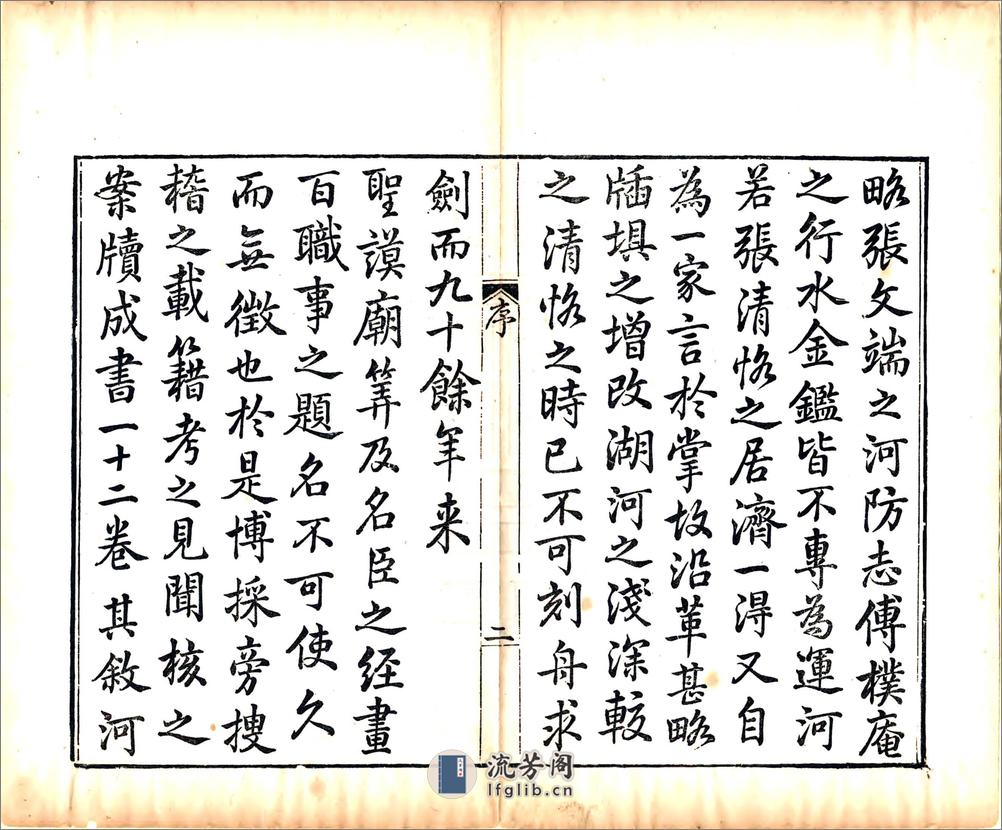 略張文端之河防志傅樸庵
之行水金鑑皆不專為運河
若張清恪之居濟一得又自
為一家言於掌故沿革甚略
牐埧之增改湖河之淺深較
之清恪之時已不可刻舟求
序
二
劍而九十餘年来
聖謨廟筭及名臣之經畫
百職事之題名不可使久
而無徵也於是博採旁搜
稽之載籍考之見聞核之
案牘成書一十二卷其敘河
流芳阁
lfglib.cn